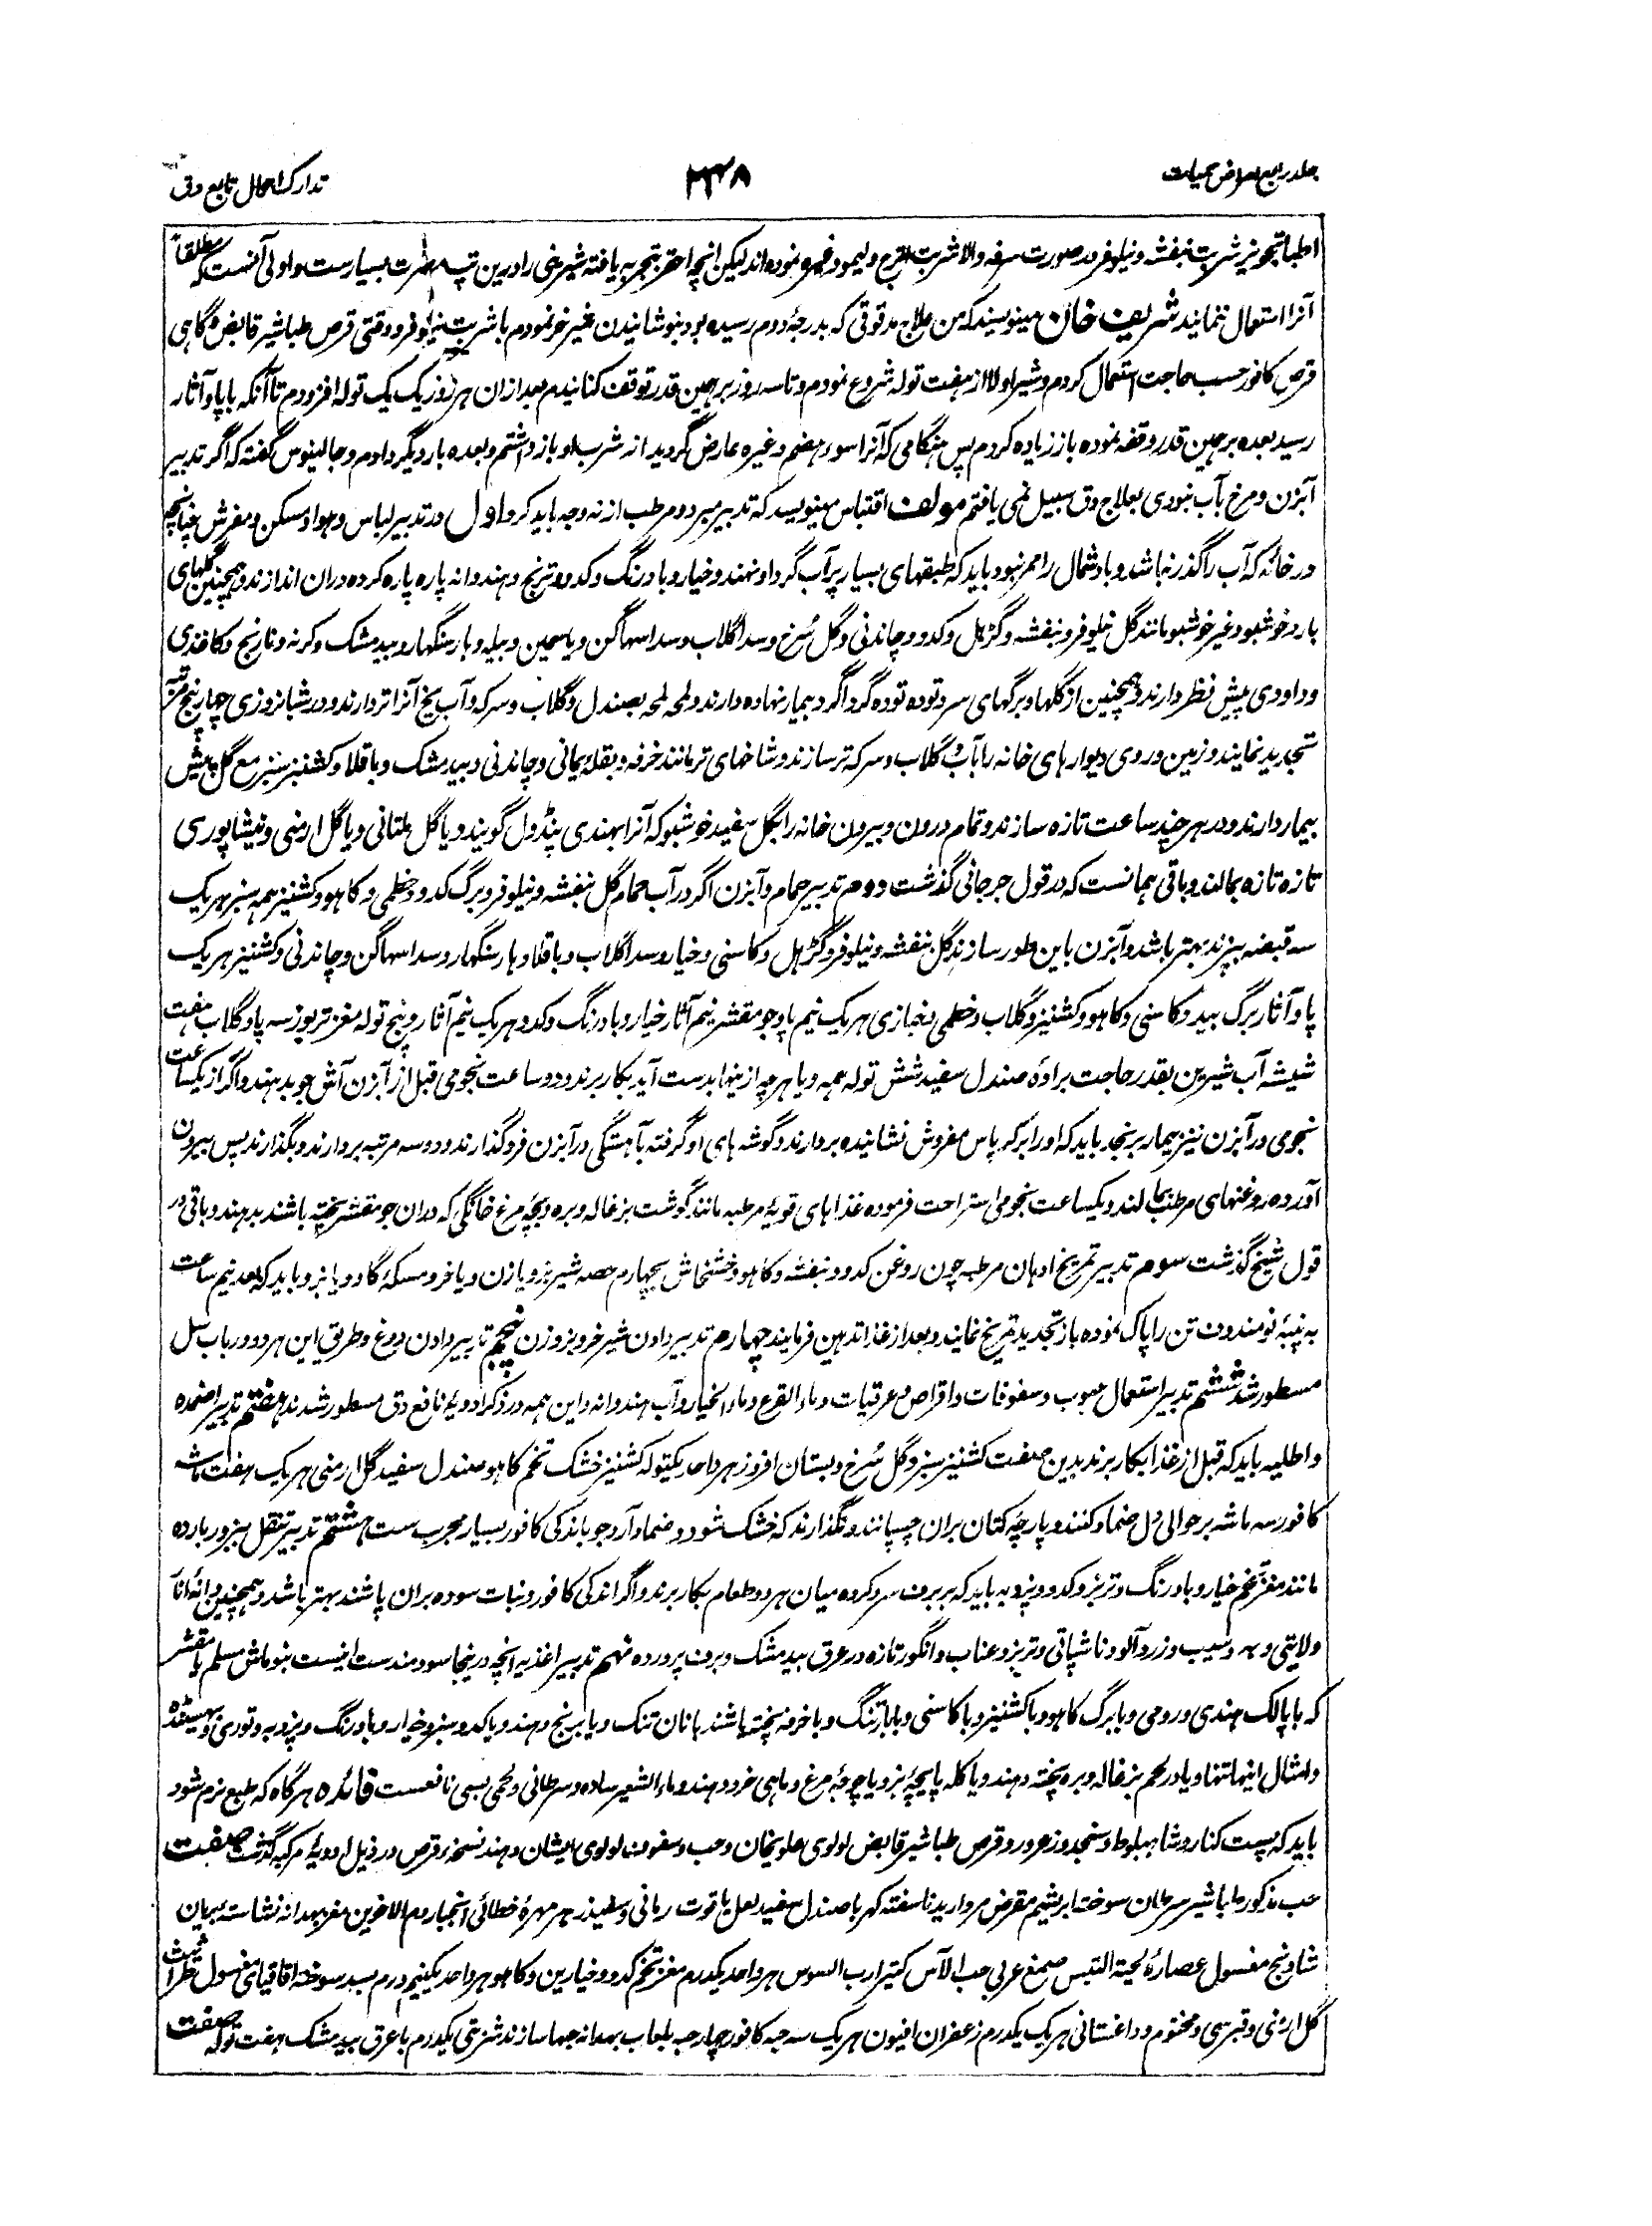 جلد رابع امراض حمیات
۲۳۸
تدارک احوال تابع دق
اطبا تجویز شربت بنفشه و نیلوفر در صورت سرفه والا شربت و لیمو وغیره نموده اند لیکن انچه احقر بتجربه یافته شیرینی را درین تپ مضرت بسیارست و اولی آنست که مطلقاً
آنرا استعمال ننمایند شریف خان مینویسند که من علاج مدقوقی که بدرجهٔ دوم رسیده بود بنوشانیدن شیر خر نمودم با شربت نیلوفر و وقتی قرص طباشیر قابض و گاهی
قرص کافور حسب حاجت استعمال کردم و شیر اولا از هفت توله شروع نمودم و تا سه روز بر همین قدر توقف کنانیدم بعد ازان هر روز یک یک توله افزودم تا آنکه با پاو آثار
رسید بعده بر همین قدر وقفه نموده باز زیاده کردم پس هنگامی که آنرا سوء هضم وغیره عارض گردید از شرب او باز داشتم و بعده بار دیگر دادم و جالینوس گفته که اگر تدبیر
آبزن و مرخ بآب نبودی بعلاج دق سبیل نمی یافتم مولف اقتباس مینویسد که تدبیر مبرد و مرطب از نه وجه باید کرد اول در تدبیر لباس و هوا و مسکن و مفرش چنانچه
در خانه که آب را گذر نباشد و باد شمال را ممر نبود باید که طبقهای بسیار پر آب گرد او نهند و خیار و بادرنگ و کدو و ترنج و هندوانه پاره پاره کرده دران اندازند و همچنین گلهای
بارد خوشبو و غیر خوشبو مانند گل نیلوفر و بنفشه و گڑهل و کدو و چاندنی و گل سُرخ و سدا گلاب و سدا سهاگن و یاسمین و بیله و هارسنگهار و بیدمشک و کرنه و نارنج و کاغذی
و داودی پیش نظر دارند و همچنین از گلها و برگهای سرد توده توده گرداگرد بیمار نهاده دارند و لمحه لمحه بصندل و گلاب و سرکه و آب یخ آنرا تر دارند و در شبانروزی چهار پنج مرتبه
تجدید نمایند و زمین و روی دیوارهای خانه را بآب و گلاب و سرکه تر سازند و شاخهای تر مانند خرفه و بقله یمانی و چاندنی و بیدمشک و باقلا و کشنیز سبز مع گل پیش
بیمار دارند و در هر چند ساعت تازه سازند و تمام درون و بیرون خانه را بگل سفید خوشبو که آنرا بهندی پنڈول گویند و یا گل ملتانی و یا گل ارمنی و نیشاپوری
تازه تازه بمالند و باقی همانست که در قول جرجانی گذشت دوم تدبیر حمام و آبزن اگر در آب حمام گل بنفشه و نیلوفر و برگ کدو و خطمی و کاهو و کشنیز همه سبز هریک
سه قبضه بپزند بهتر باشد و آبزن باین طور سازند گل بنفشه و نیلوفر و گڑهل و کاسنی و خیار و سدا گلاب و باقلا و هارسنگهار و سدا سهاگن و چاندنی و کشنیز هریک
پاو آثار برگ بید و کاسنی و کاهو و کشنیز و گلاب و خطمی و خبازی هریک نیم پاو جو مقشر نیم آثار خیار و بادرنگ و کدو هریک نیم آثار و پنج توله مغز تربوز سه پاو گلاب هفت
شیشه آب شیرین بقدر حاجت برادهٔ صندل سفید شش توله همه و یا هرچه ازینها بدست آید بکار برند و دو ساعت نجومی قبل از آبزن آش جو بدهند و اگر از یکساعت
نجومی در آبزن نیز بیمار برنجد باید که او را بر کرپاس مفروش نشانیده بردارند و گوشه های او گرفته بآهستگی در آبزن فرو گذارند و دو سه مرتبه بردارند و بگذارند پس بیرون
آورده روغنهای مرطب بمالند و یکساعت نجومی استراحت فرموده غذاهای قویهٔ مرطبه مانند گوشت بزغاله و بره و بچهٔ مرغ خانگی که دران جو مقشر پخته باشند بدهند و باقی در
قول شیخ گذشت سوم تدبیر تمریخ ادهان مرطبه چون روغن کدو و بنفشه و کاهو و خشخاش بچهارم حصه شیر بز و یا زن و یا خر و مسکهٔ گاو و یا بز و باید که بعد نیم ساعت
به پنبهٔ نو مندوف تن را پاک نموده باز تجدید تمریخ نمایند و بعد از غذا تدهین فرمایند چهارم تدبیر دادن شیر خر و بز و زن پنجم تدبیر دادن دوغ و طریق این هر دو در باب سل
مسطور شد ششم تدبیر استعمال حبوب و سفوفات و اقراص و عرقیات و ماء القرع و ماء الخیار و آب هندوانه و این همه در ذکر ادویهٔ نافع دق مسطور شدند هفتم تدبیر اضمده
و اطلیه باید که قبل از غذا بکار برند بدین صفت کشنیز سبز و گل سُرخ و بستان افروز هر واحد یکتوله کشنیز خشک تخم کاهو صندل سفید گل ارمنی هریک هفت ماشه
کافور سه ماشه بر حوالی دل ضماد کنند و پارچهٔ کتان بران چسپانند و نگذارند که خشک شود و ضماد آرد جو باندکی کافور بسیار مجرب ست هشتم تدبیر تنقل ببزور بارده
مانند مغز تخم خیار و بادرنگ و تربز و کدو و پیٹھه باید که بر برف سرد کرده میان هر دو طعام بکار برند و اگر اندکی کافور و نبات سوده بران پاشند بهتر باشد و همچنین دانهٔ انار
ولایتی و به و سیب و زردآلو و ناشپاتی و تربز و عناب و انگور تازه در عرق بیدمشک و برف پرورده نهم تدبیر اغذیه انچه درینجا سودمندست اینست بنو ماش مسلم یا مقشر
که با پالک هندی و رومی و با برگ کاهو و با کشنیز و با کاسنی و با بارتنگ و با خرفه پخته باشند با نان تنک و یا برنج دهند و یا کدو سبز و خیار و بادرنگ و پیٹھه و توری و بهینڈه
و امثال اینها تنها و یا در لحم بزغاله و بره پخته دهند و یا کله پایچهٔ بز و یا چوزهٔ مرغ و ماهی خرد دهند و ماء الشعیر ساده و سرطانی و لحمی بسی نافعست فائده هرگاه که طبع نرم شود
باید که پست کنار و شاهبلوط و سنجد و زعرور و قرص طباشیر قابض لولوی علویخان و حب و سفوف لولوی ایشان دهند نسخهٔ قرص در ذیل ادویهٔ مرکبه گذشت صفت
حب مذکور طباشیر سرطان سوخته ابریشم مقرض مروارید ناسفته کهربا صندل سفید لعل یاقوت رمانی و سفید زهر مهرهٔ خطائی انجبار دم الاخوین مغز بهدانه نشاسته بریان
شادنج مغسول عصارهٔ لحیة التیس صمغ عربی حب الآس کتیرا رب السوس هر واحد یکدرم مغز تخم کدو و خیارین و کاهو هر واحد یکنیم درم بسد سوخته اقاقیای مغسول طراثیث
گل ارمنی و قبرسی و مختوم و داغستانی هریک یکدرم زعفران افیون هریک سه حبه کافور چهار حبه بلعاب بهدانه حبها سازند شربتی یکدرم با عرق بیدمشک هفت توله صفت